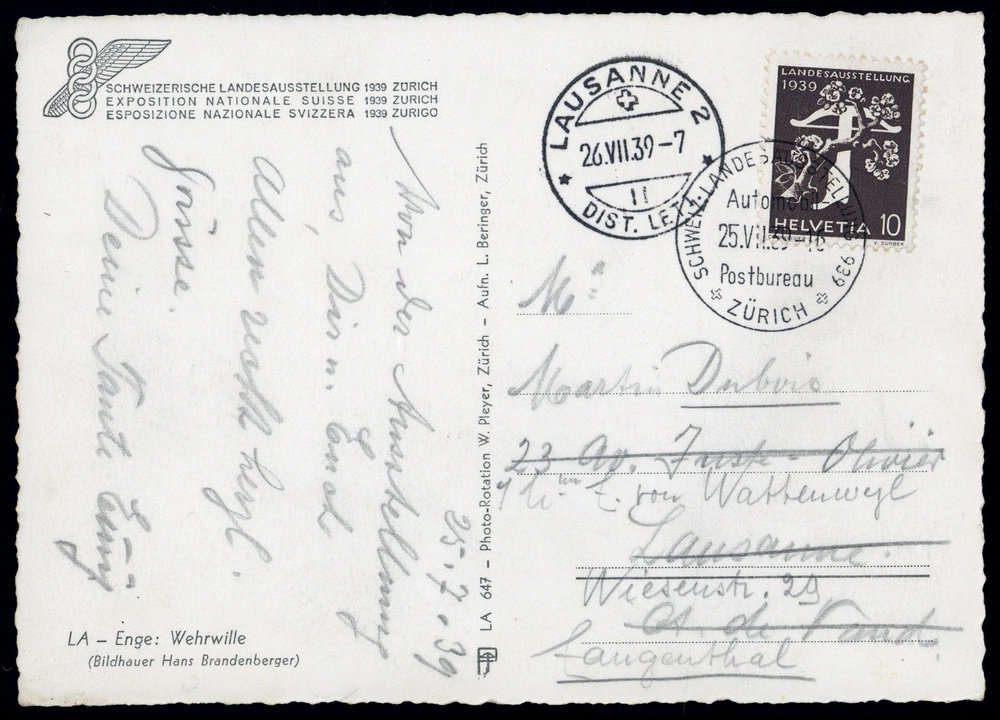 SCHWEIZERISCHE LANDESAUSSTELLUNG 1939 ZÜRICH
EXPOSITION NATIONALE SUISSE 1939 ZURICH
ESPOSIZIONE NAZIONALE SVIZZERA 1939 ZURIGO
25.7.39
Von der Ausstellung
aus, Dir u. Euch
Allen recht herzl.
Grüsse.
Deine Tante
LA – Enge: Wehrwille
(Bildhauer Hans Brandenberger)
LA 647 – Photo-Rotation W. Pleyer, Zürich – Aufn. L. Beringer, Zürich
LAUSANNE 2
26.VII.39-7
II
DIST. LETT.
LANDESAUSSTELLUNG
1939
HELVETIA 10
SCHWEIZ. LANDESAUSSTELLUNG 1939
Automobil
25.VII.39-16
Postbureau
ZÜRICH
Martin Dubois
23 Av. Juste-Olivier
von Wattenwyl
Lausanne.
Wiesenstr. 29
Ct. de Vaud.
Langenthal